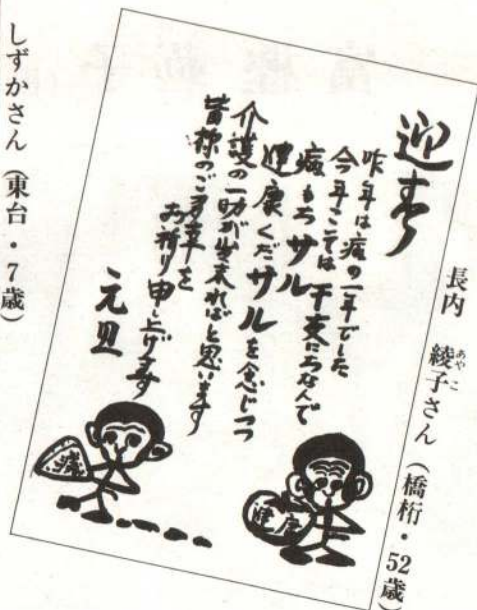 長内 綾子さん (橋桁・52歳)
あやこ
迎春
昨年は病の一年でした
今年こそは干支にちなんで
病もちサル
健康くだサルを念じつつ
介護の一助が出来ればと思います
皆様のご多幸を
お祈り申し上げます
元旦
健康
しずかさん (東台・7歳)